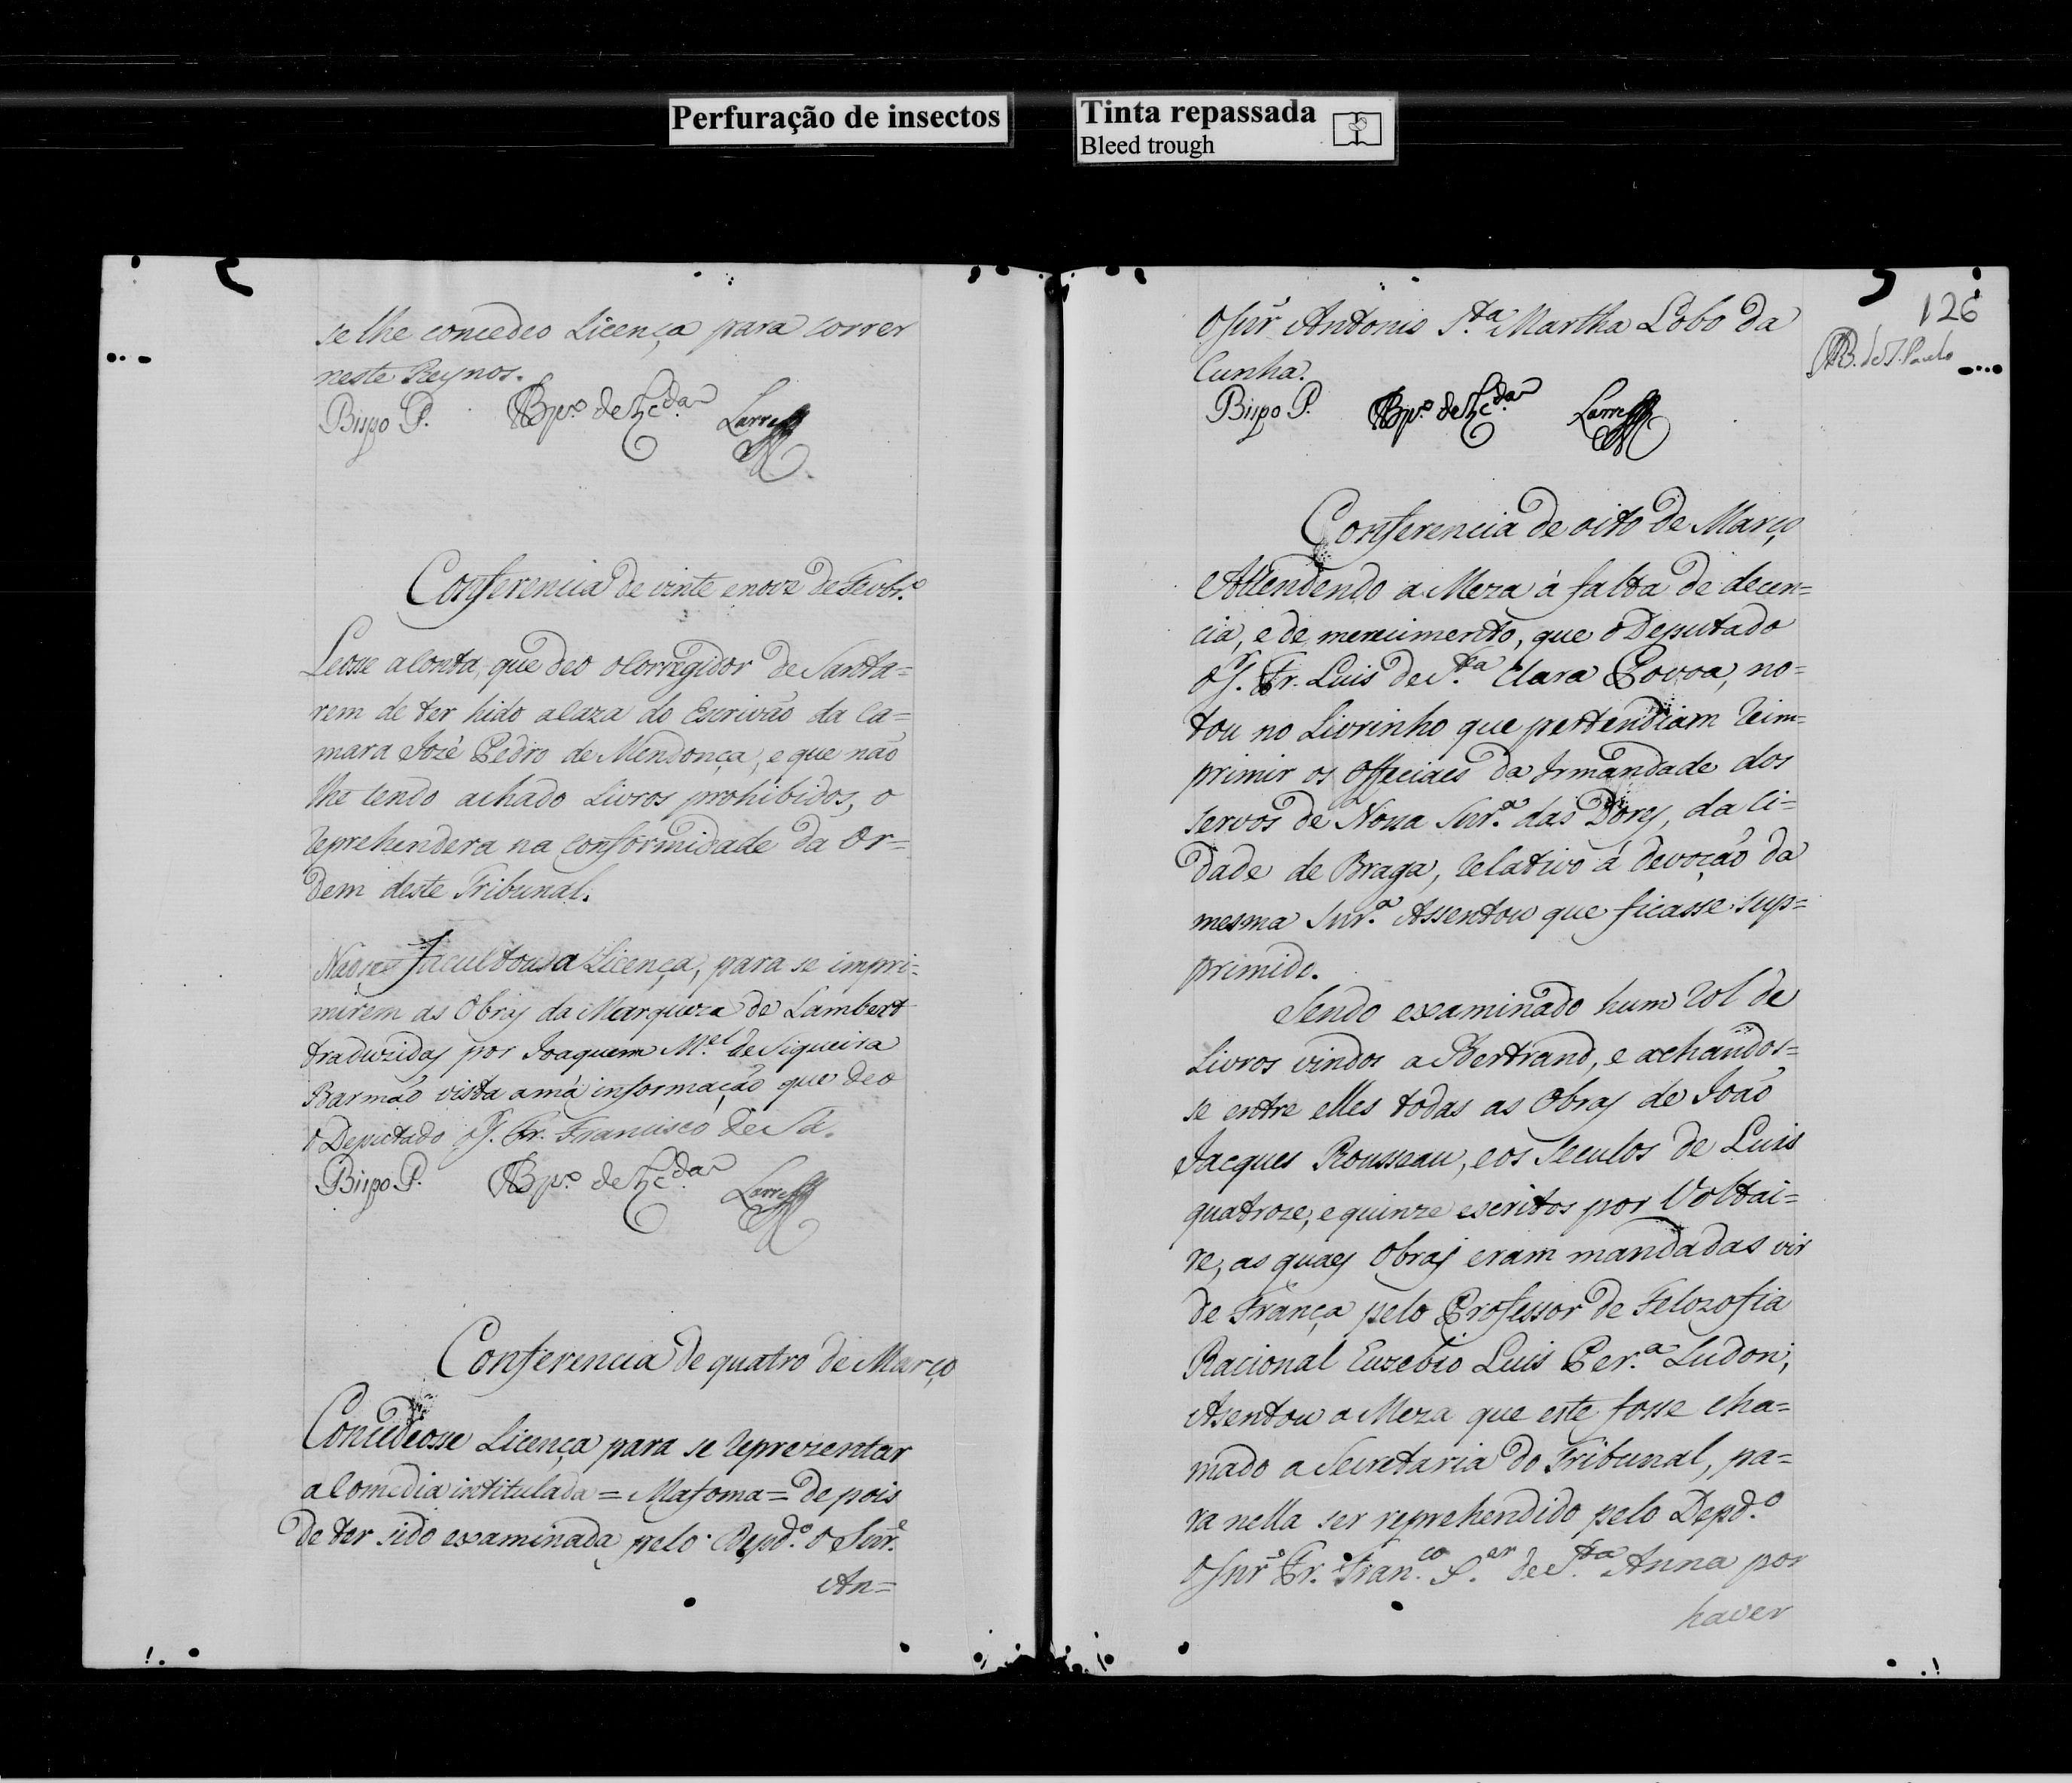 Perfuração de insectos
Tinta repassada
Bleed trough
se lhe concedeo Licença para correr
neste Reynos.
Bispo P.
Conferencia de vinte e nove de Fevbr.º
Leosse a Conta, que deo o Corregidor de Santa=
rem de ter hido a Caza do Escrivão da Ca=
mara Jozé Pedro de Mendonça, e que não
lhe tendo achado Livros prohibidos, o
reprehendera na conformidade da Or=
dem deste Tribunal.
Facultou a Licença, para se impri=
mirem as Obras da Marqueza de Lambert
traduzidas por Joaquem M.el de Siqueira
Barmão vista a má informação que deo
o Deputado Fr. Francisco de Sá.
Bispo P.
Conferencia de quatro de Março
Concedeosse Licença para se reprezentar
a Comedia intitulada = Mafoma = depois
de ter sido examinada pelo Depd.º o Snr.e
An=
126
O Snr Antonio S.ta Martha Lobo da
Cunha.
B. de S. Paulo
Bispo P.
Conferencia de oito de Março
Attendendo a Meza á falta de decen=
cia, e de merecimento, que o Deputado
Fr. Luis de S.ta Clara Povoa, no=
tou no Livrinho que pertendiam reim=
primir os Officiaes da Irmandade dos
servos de Nossa Snr.a das Dores, da Ci=
dade de Braga, relativo á devoção da
mesma Snr.a Assentou que ficasse sup=
primido.
Sendo examinado hum rol de
Livros vindos a Bertrand, e achandos=
se entre elles todas as Obras de João
Jacques Rousseau, e os Seculos de Luis
quatroze, e quinze escritos por Voltai=
re, as quaes Obras eram mandadas vir
de França pelo Professor de Felozofia
Racional Euzebio Luis Per.a Ludon;
Asentou a Meza que este fosse cha=
mado a Secretaria do Tribunal, pa=
ra nella ser reprehendido pelo Depd.º
O Snr Fr. Fran.co X.er de S.ta Anna por
haver